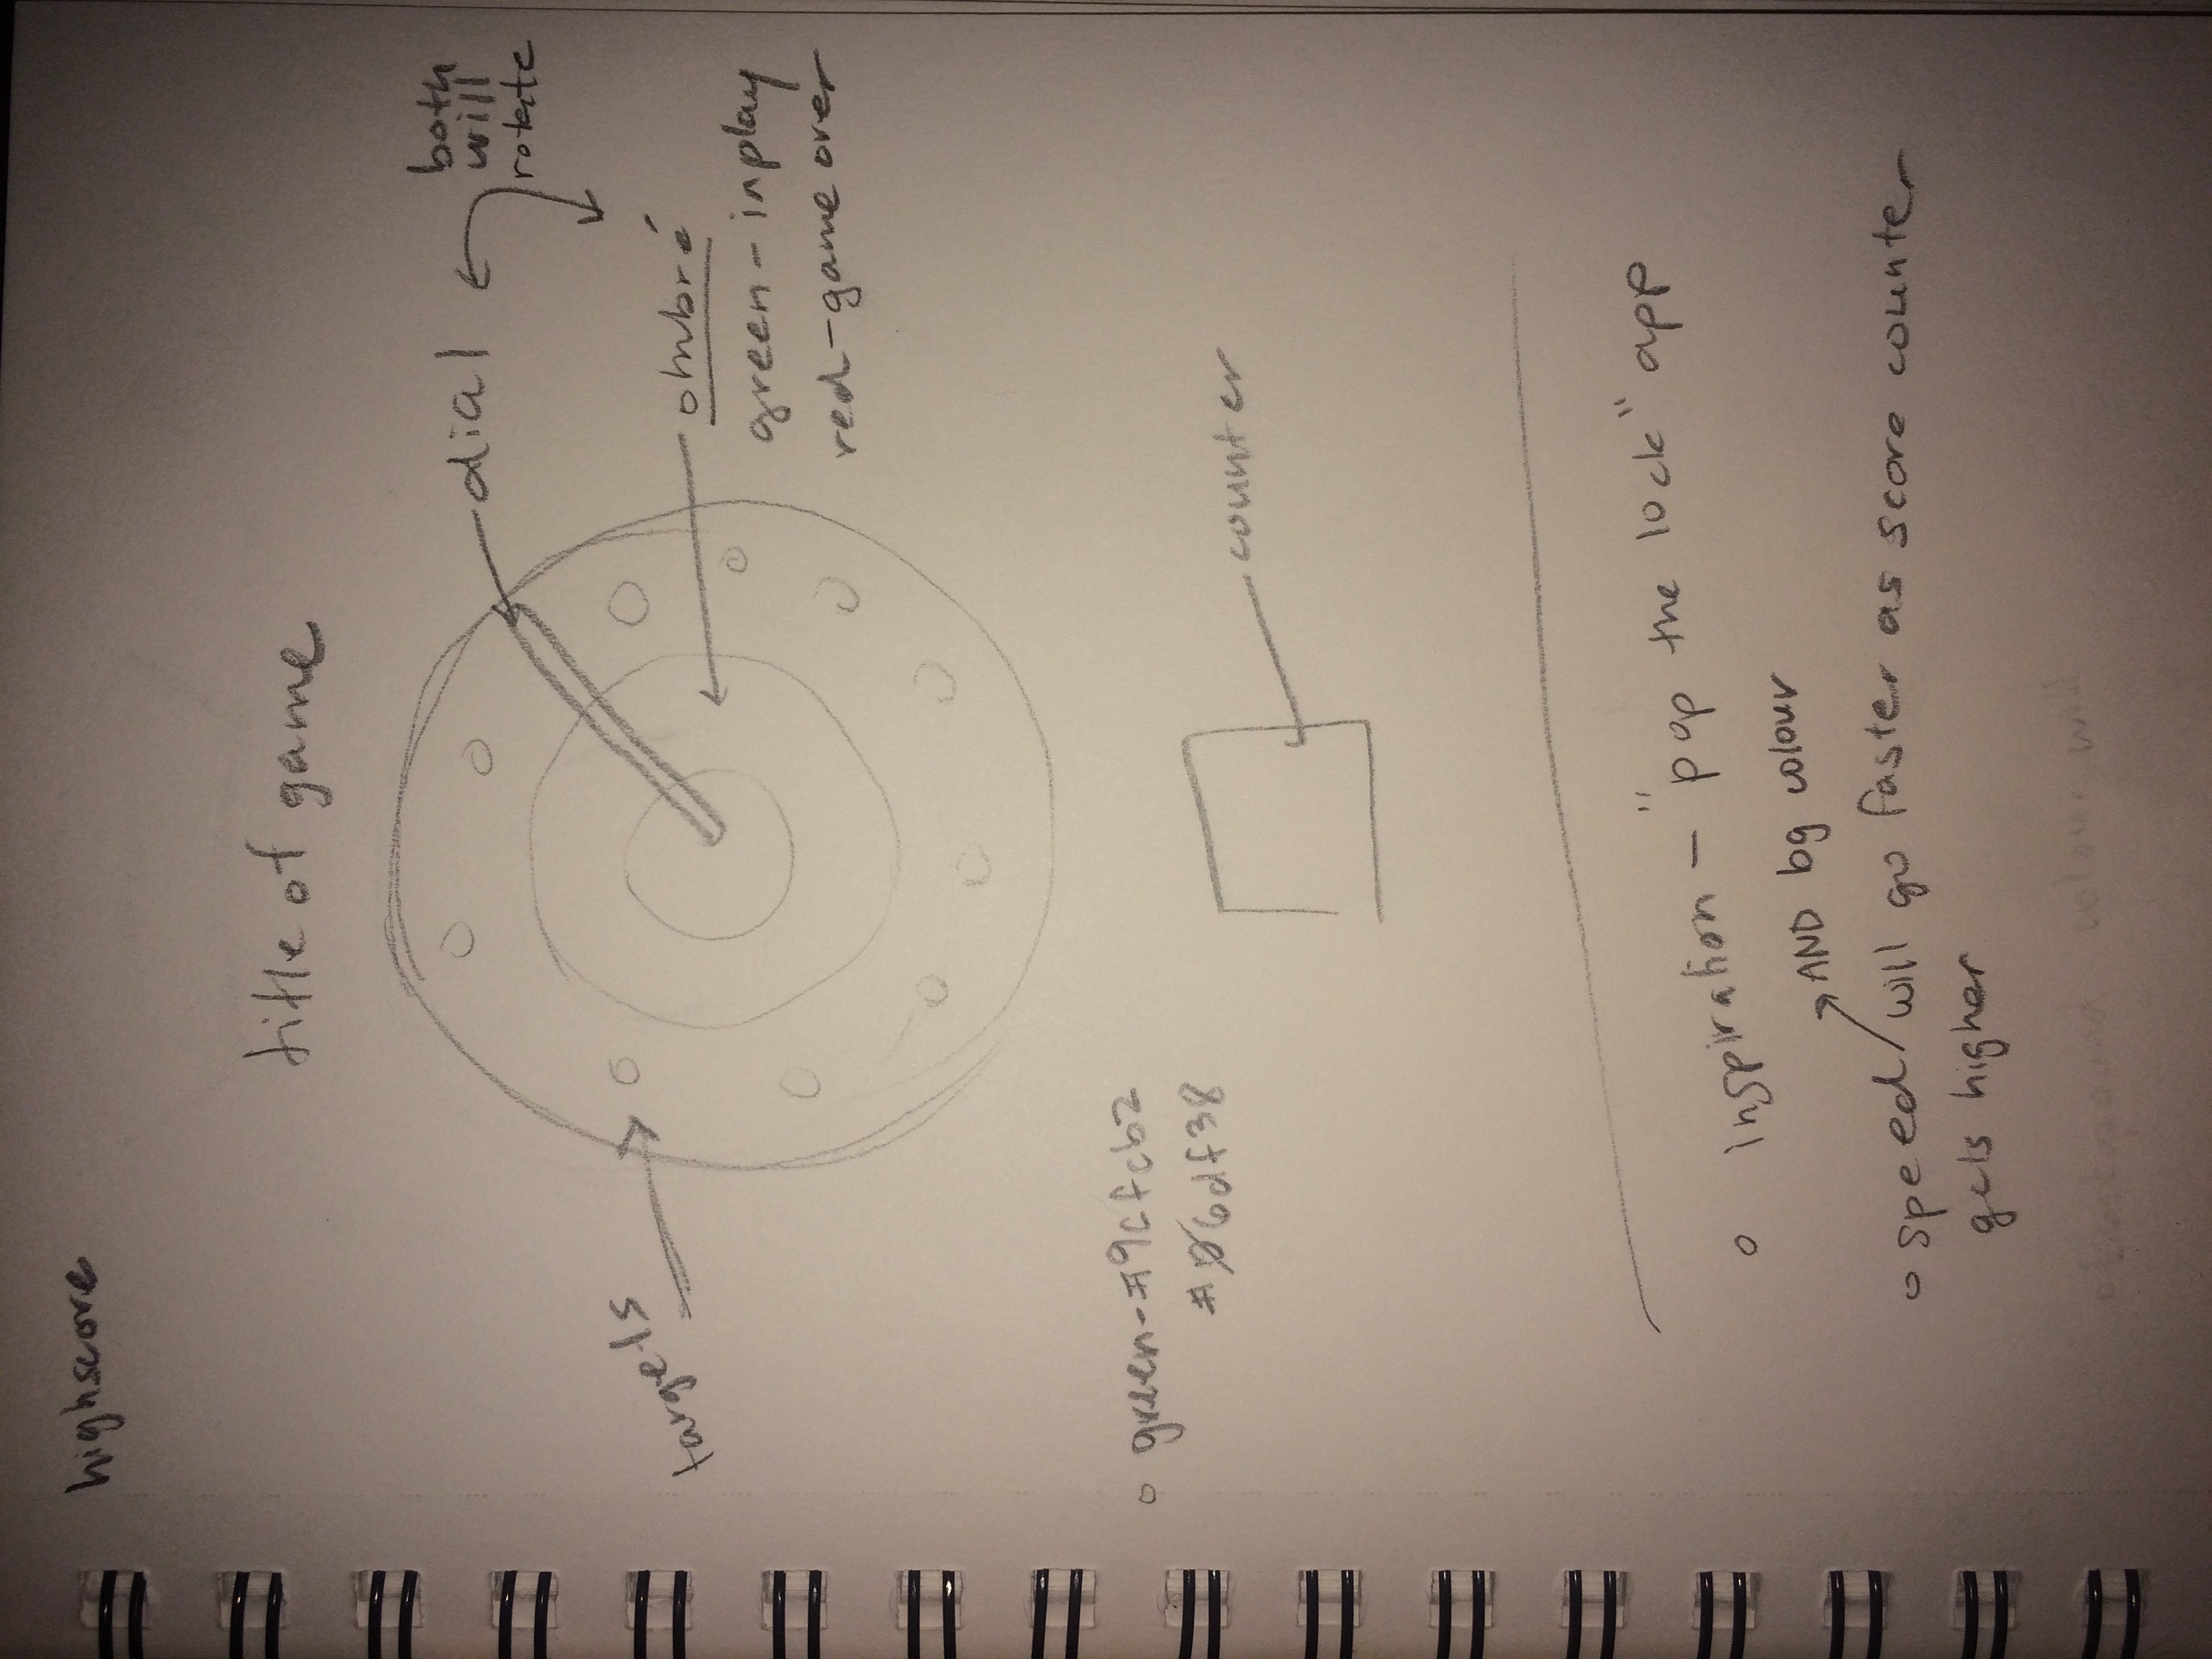 highscore
title of game
dial
both
will
rotate
targets
ombré
green - inplay
red - game over
green - #9cfcb2
#06df38
counter
inspiration - "pop the lock" app
AND bg colour
speed will go faster as score counter
gets higher